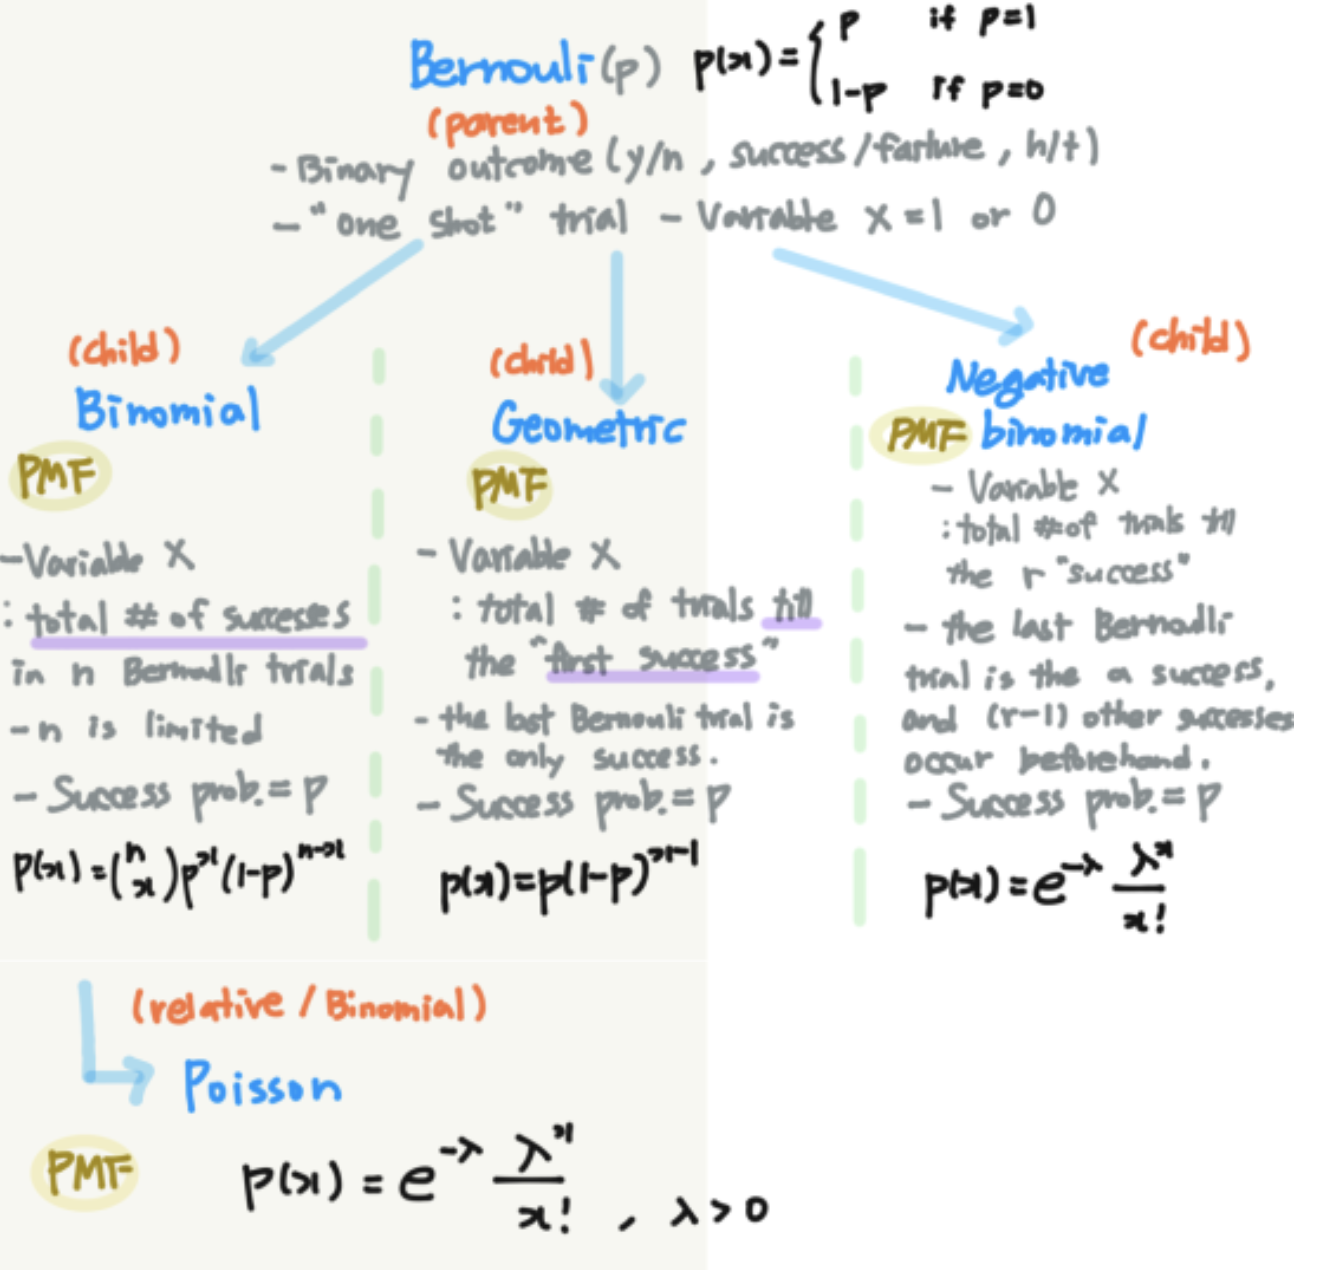 Bernouli (p) p(x) = { p if p=1
1-p if p=0
(parent)
- Binary outcome (y/n, success/failure, h/t)
- "one shot" trial - Variable X = 1 or 0
(child)
Binomial
PMF
- Variable X
: total # of successes
in n Bernoulli trials
- n is limited
- Success prob. = p
p(x) = (n x) p^x (1-p)^n-x
(child)
Geometric
PMF
- Variable X
: total # of trials till
the "first success"
- the last Bernouli trial is
the only success.
- Success prob. = p
p(x) = p(1-p)^x-1
(child)
Negative
PMF binomial
- Variable X
: total # of trials till
the r "success"
- the last Bernoulli
trial is the a success,
and (r-1) other successes
occur beforehand.
- Success prob. = p
p(x) = e^-λ λ^x / x!
(relative / Binomial)
Poisson
PMF
p(x) = e^-λ λ^x / x! , λ > 0